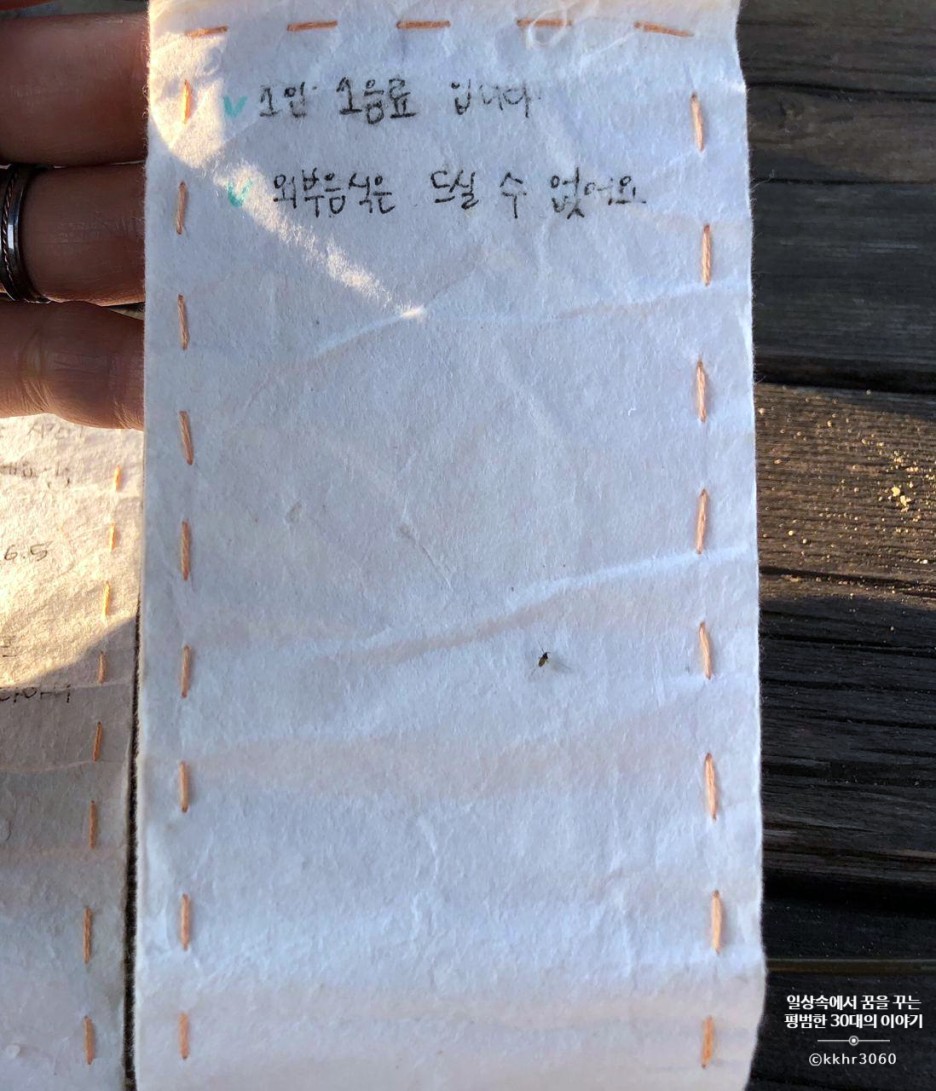 1인 1음료 입니다
외부음식은 드실 수 없어요.
6.5
일상속에서 꿈을 꾸는
평범한 30대의 이야기
©kkhr3060